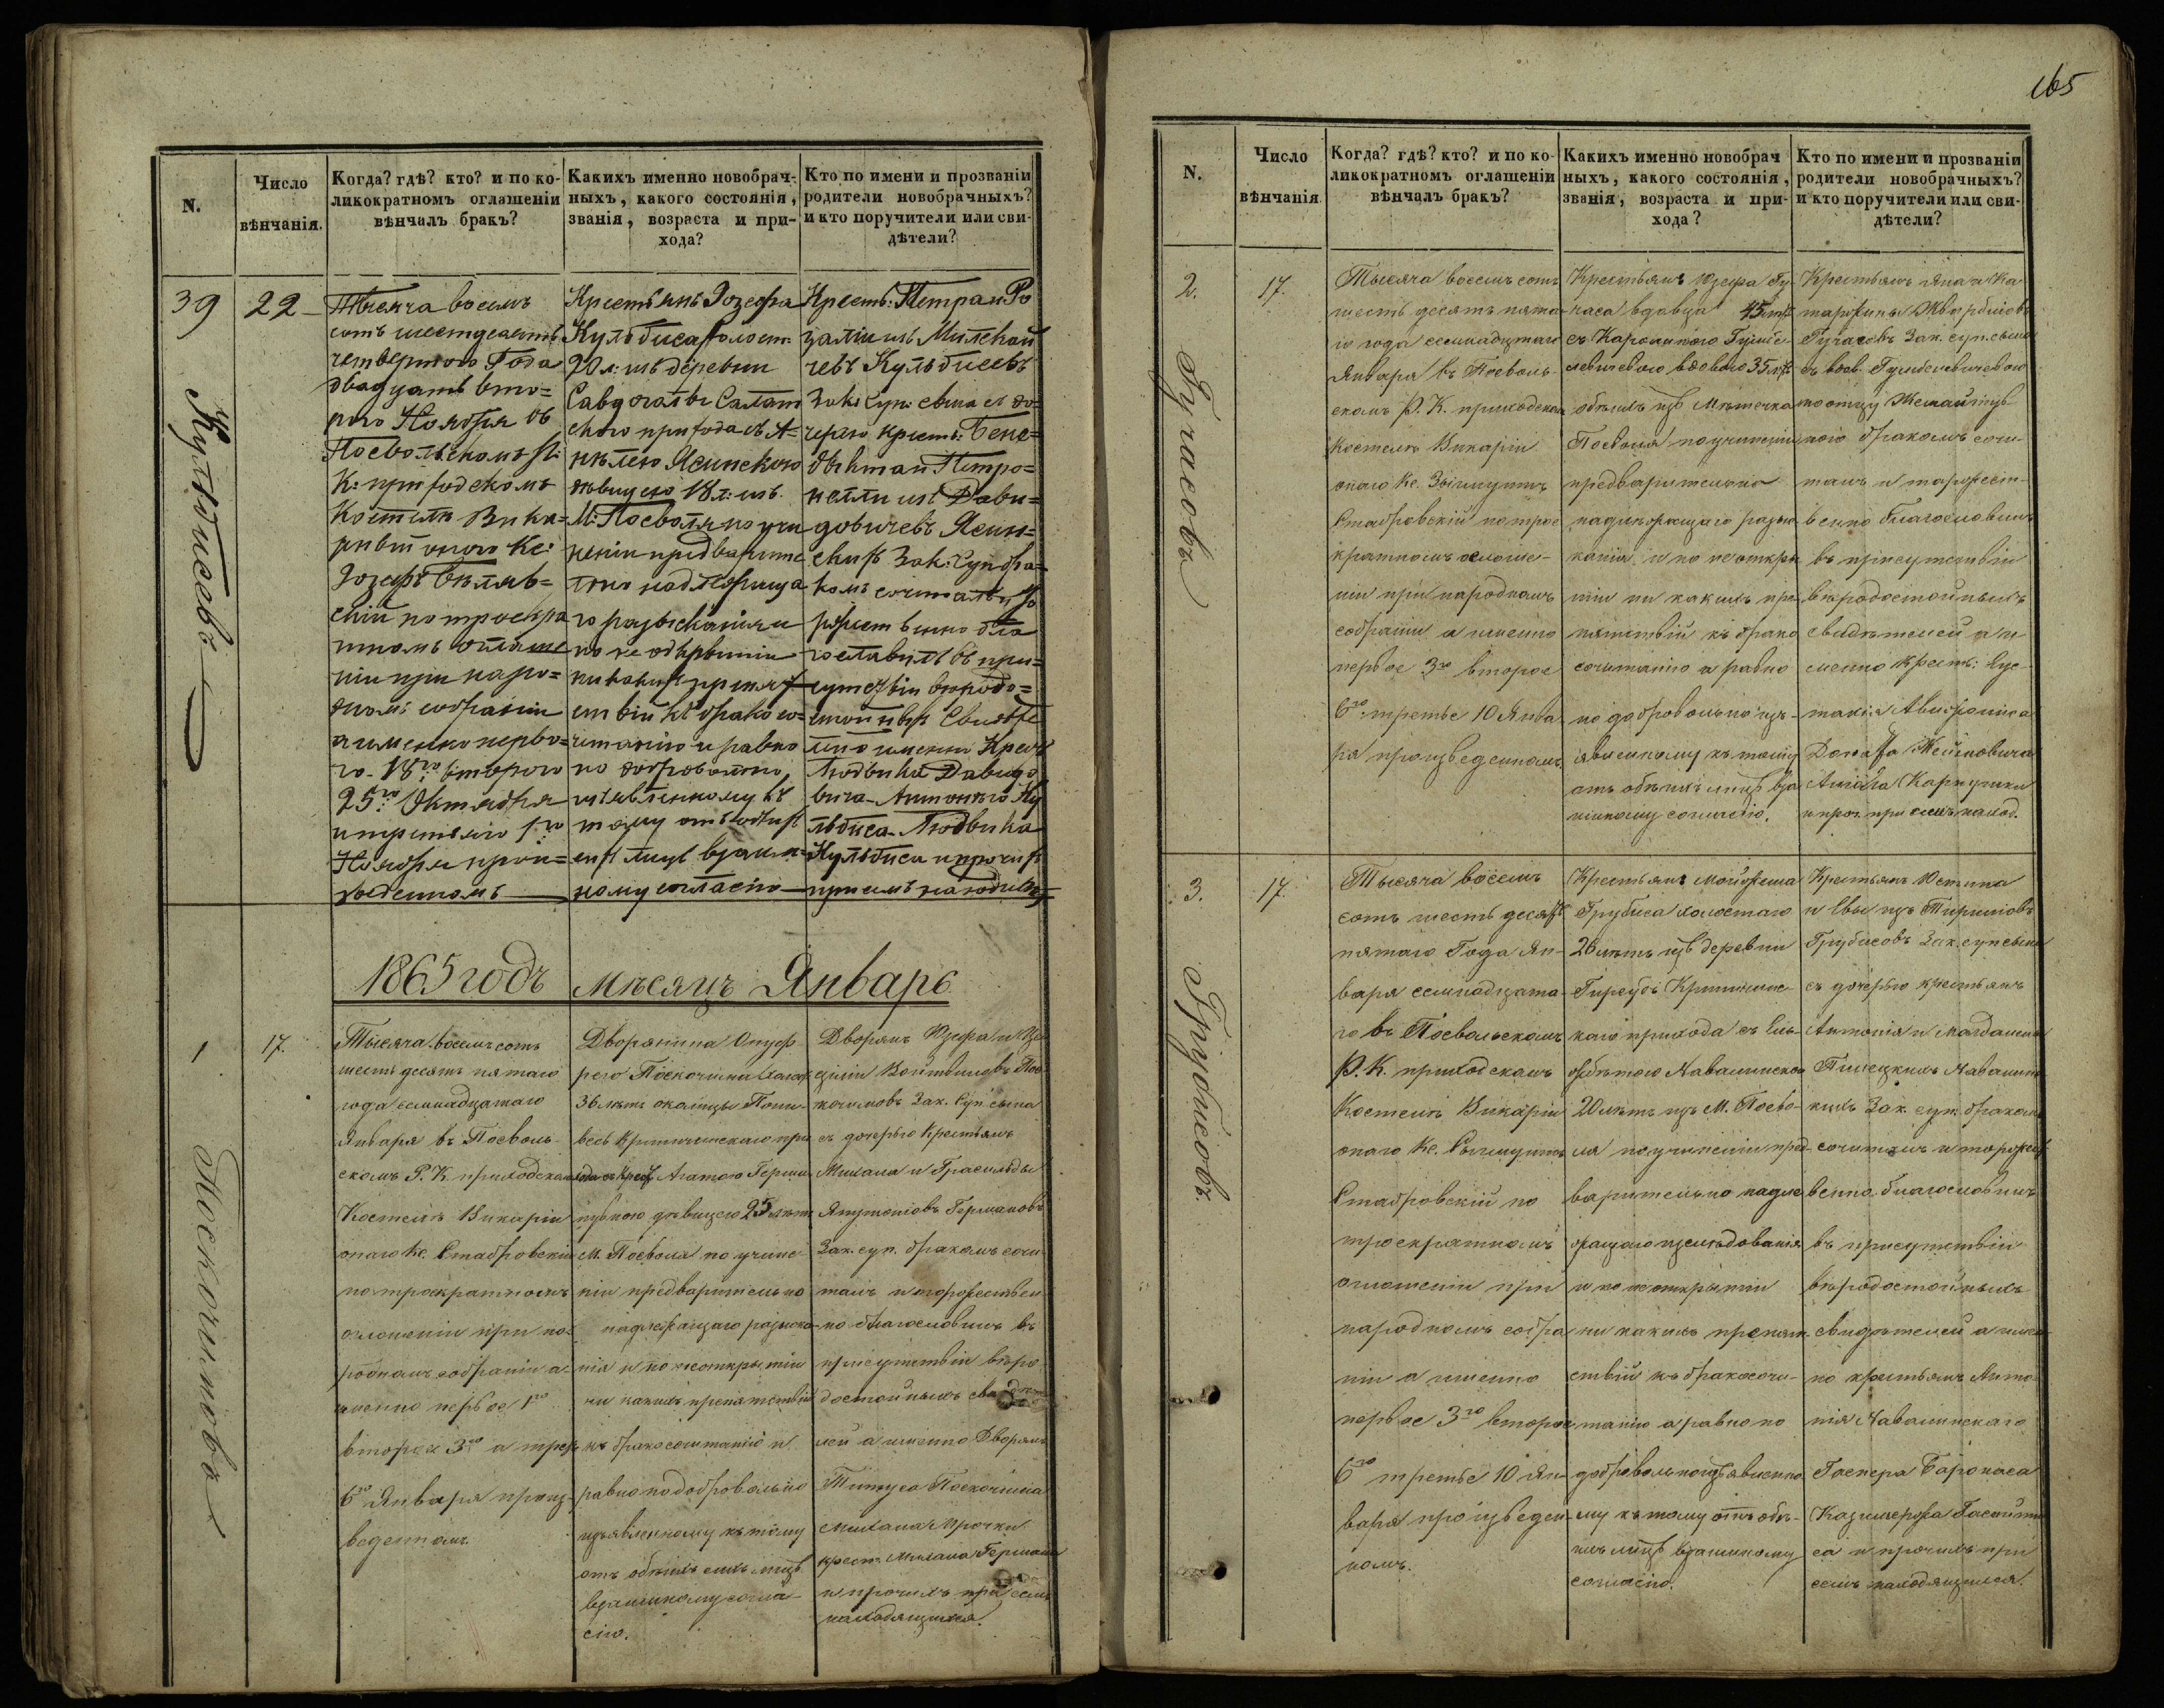 N.
Число
вѣнчанія.
Когда? гдѣ? кто? и по ко-
ликократномъ оглашеніи
вѣнчалъ бракъ?
Какихъ именно новобрач-
ныхъ, какого состоянія,
званія, возраста и при-
хода?
Кто по имени и прозванію
родители новобрачныхъ?
и кто поручители или сви-
дѣтели?
39
22
Тысяча восемъ
сотъ шестдесятъ
четвертого Года
двадцать вто=
рого Ноября въ
Поевольскомъ Р:
К: приходскомъ
Костелѣ Вика=
оного Кс:
Іозефъ
скій по троекра
тномъ оглаше
ніи при наро=
дномъ собраніи
а именно перво=
го 18го втораго
25го Октября
и третьяго 1го
Ноября произ=
веденномъ
Крестьянъ Іозефа
Кульбиса холост.
20 л: изъ деревни
Салат
ского прихода съ А=
нѣлею Ясинского
дѣвицею 18 л: изъ
М: Поеволя по учи
неніи предварите
льно надлежаща
го разысканія и
по не открытіи
никакихъ препят
ствій къ брако со=
четанію и равно
по добровольно,
изъявленному къ
тому отъ обѣих
сихъ лицъ взаим=
ному согласію
Крест: Петра и Ро
заліи изъ
чевъ Кульбисовъ
Зак: Суп: сына съ до=
черью крест: Бене=
дыкта и Петро=
нелли изъ Дави=
довичевъ Ясин=
скихъ Зак: Суп бра=
комъ сочеталъ и то
ржественно бла
гословилъ въ при=
сутствіи вѣродо=
стойныхъ Свидѣте
лей именно Крест
Людвика Давидо
вича Антоніего Ку
льбиса Людвика
Кульбиса и прочихъ
при семъ находивш
Кульбисовъ
1865 годъ мѣсяцъ Январь
1
17.
Тысяча восемъ сотъ
шесть десятъ пятаго
года семнадцатаго
Января въ Поеволь-
скомъ Р. К. приходскомъ
Костелѣ Викарій
онаго Кс. Стабровскій
по троекратномъ
оглашеніи при на-
родномъ собраніи а
именно первое 1го
второе 3го а трет
6го Января произ-
веденномъ
Дворянина Онуф-
рего Поскочима холос
36 лѣтъ околицы
весь при
Агатою Герма
новною дѣвицею 25 лѣтъ
М. Поеволя по учине-
ніи предварительно
надлежащаго разыска-
нія и по неоткрытіи
ни какихъ препятствій
къ бракосочетанію и
равно по добровольно
изъявленному къ тому
отъ обѣихъ сихъ лицъ
взаимному согла-
сію.
Дворянъ Юзефа и
циліи Пос
кочимовъ Зак. Суп. сына
съ дочерью Крестьянъ
Михала и Грасильды
Германовъ
Зак. суп. бракомъ соче
талъ и торжествен
но благословилъ въ
присутствіи вѣро
достойныхъ свидѣте
лей а именно Дворянъ
Титуса Поскочима
Михала Мрочки
крест. Михала Германа
и прочихъ при семъ
находящихся.
Поскочимовъ
165
N.
Число
вѣнчанія
Когда? гдѣ? кто? и по ко-
ликократномъ оглашеніи
вѣнчалъ бракъ?
Какихъ именно новобрач
ныхъ, какого состоянія,
званія, возраста и при-
хода?
Кто по имени и прозванію
родители новобрачныхъ?
и кто поручители или сви-
дѣтели?
2.
17.
Тысяча восемъ сотъ
шесть десятъ пята-
го года семнадцатаго
Января въ Поеволь-
скомъ Р. К. приходском
Костелѣ Викарій
онаго Кс. Зыгмунтъ
Стабровскій по трое
кратномъ оглаше-
ніи при народномъ
собраніи а именно
первое 3го второе
6го третье 10 Янва
ря произведенномъ
Крестьянъ Юзефа Гу-
часа вдовца 45 лѣт
съ Каролиною
вдовою 35 лѣт
обѣихъ изъ Мѣстечка
Поеволя по учиненіи
предварительно
надлежащаго разыс
канія и по неоткры
тіи ни какихъ пре
пятствій къ брако
сочетанію а равно
по добровольно изъ-
явленному къ тому
отъ обѣихъ лицъ вза
имному согласію.
Крестьянъ Яна и Ка
тарины
Гучасовъ Зак. суп. сына
съ вдов.
нею бракомъ соче-
талъ и торжест-
венно благословилъ
въ присутствіи
вѣродостойныхъ
свидѣтелей а и
менно Крест: Еус-
тахія
Доната
и проч. при семъ наход.
Гучасовъ
3.
17.
Тысяча восемъ
сотъ шесть десятъ
пятаго Года Ян-
варя семнадцата-
го въ Поевольскомъ
Р. К. приходскомъ
Костелѣ Викарій
онаго Кс. Зыгмунтъ
Стабровскій по
троекратномъ
оглашеніи при
народномъ собра
ніи а именно
первое 3го второе
6го третье 10 Ян-
варя произведен-
номъ.
Крестьянъ Мойжеша
Грубиса холостаго
26 лѣтъ изъ деревни
каго прихода съ Ель-
20 лѣтъ изъ М. Поево-
ля по учиненіи пред-
варительно надле
жащаго изслѣдованія
и по неоткрытіи
ни какихъ препят
ствій къ бракосоче-
танію а равно по
добровольно изъявленно
му къ тому отъ обѣ-
ихъ лицъ взаимному
согласію.
Крестьянъ Юстина
и Евы изъ
Грубисовъ Зак. суп. сына
съ дочерью крестьянъ
Антонія и Магдалены
кихъ Зак. суп. бракомъ
сочеталъ и торжест
венно благословилъ
въ присутствіи
вѣродостойныхъ
свидѣтелей а имен
но крестьянъ Анто
нія
Гаспера
Казимержа
са и прочихъ при
семъ находящихся.
Грубисовъ